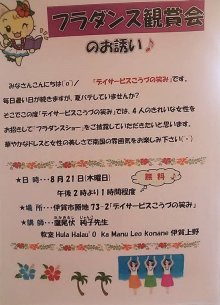 フラダンス観賞会
のお誘い♪
みなさんこんにちは(o^)/ 「デイサービスこうづの笑み」です。
毎日暑い日が続きますが、夏バテしていませんか？
そこでこの度「デイサービスこうづの笑み」では、4人のきれいな女性を
お招きして「フラダンスショー」をご披露していただきたいと思います。
華やかなドレスと女性の美しさで南国の雰囲気をお楽しみ下さい(^-^)
★日 時・・・8月21日(木曜日) 無料
午後2時より1時間程度
★場 所・・・伊賀市勝地73-2「デイサービスこうづの笑み」
★講 師・・・瀧尾伏 純子先生
教室 Hula Halau'O Ka Manu Leo Konane 伊賀上野